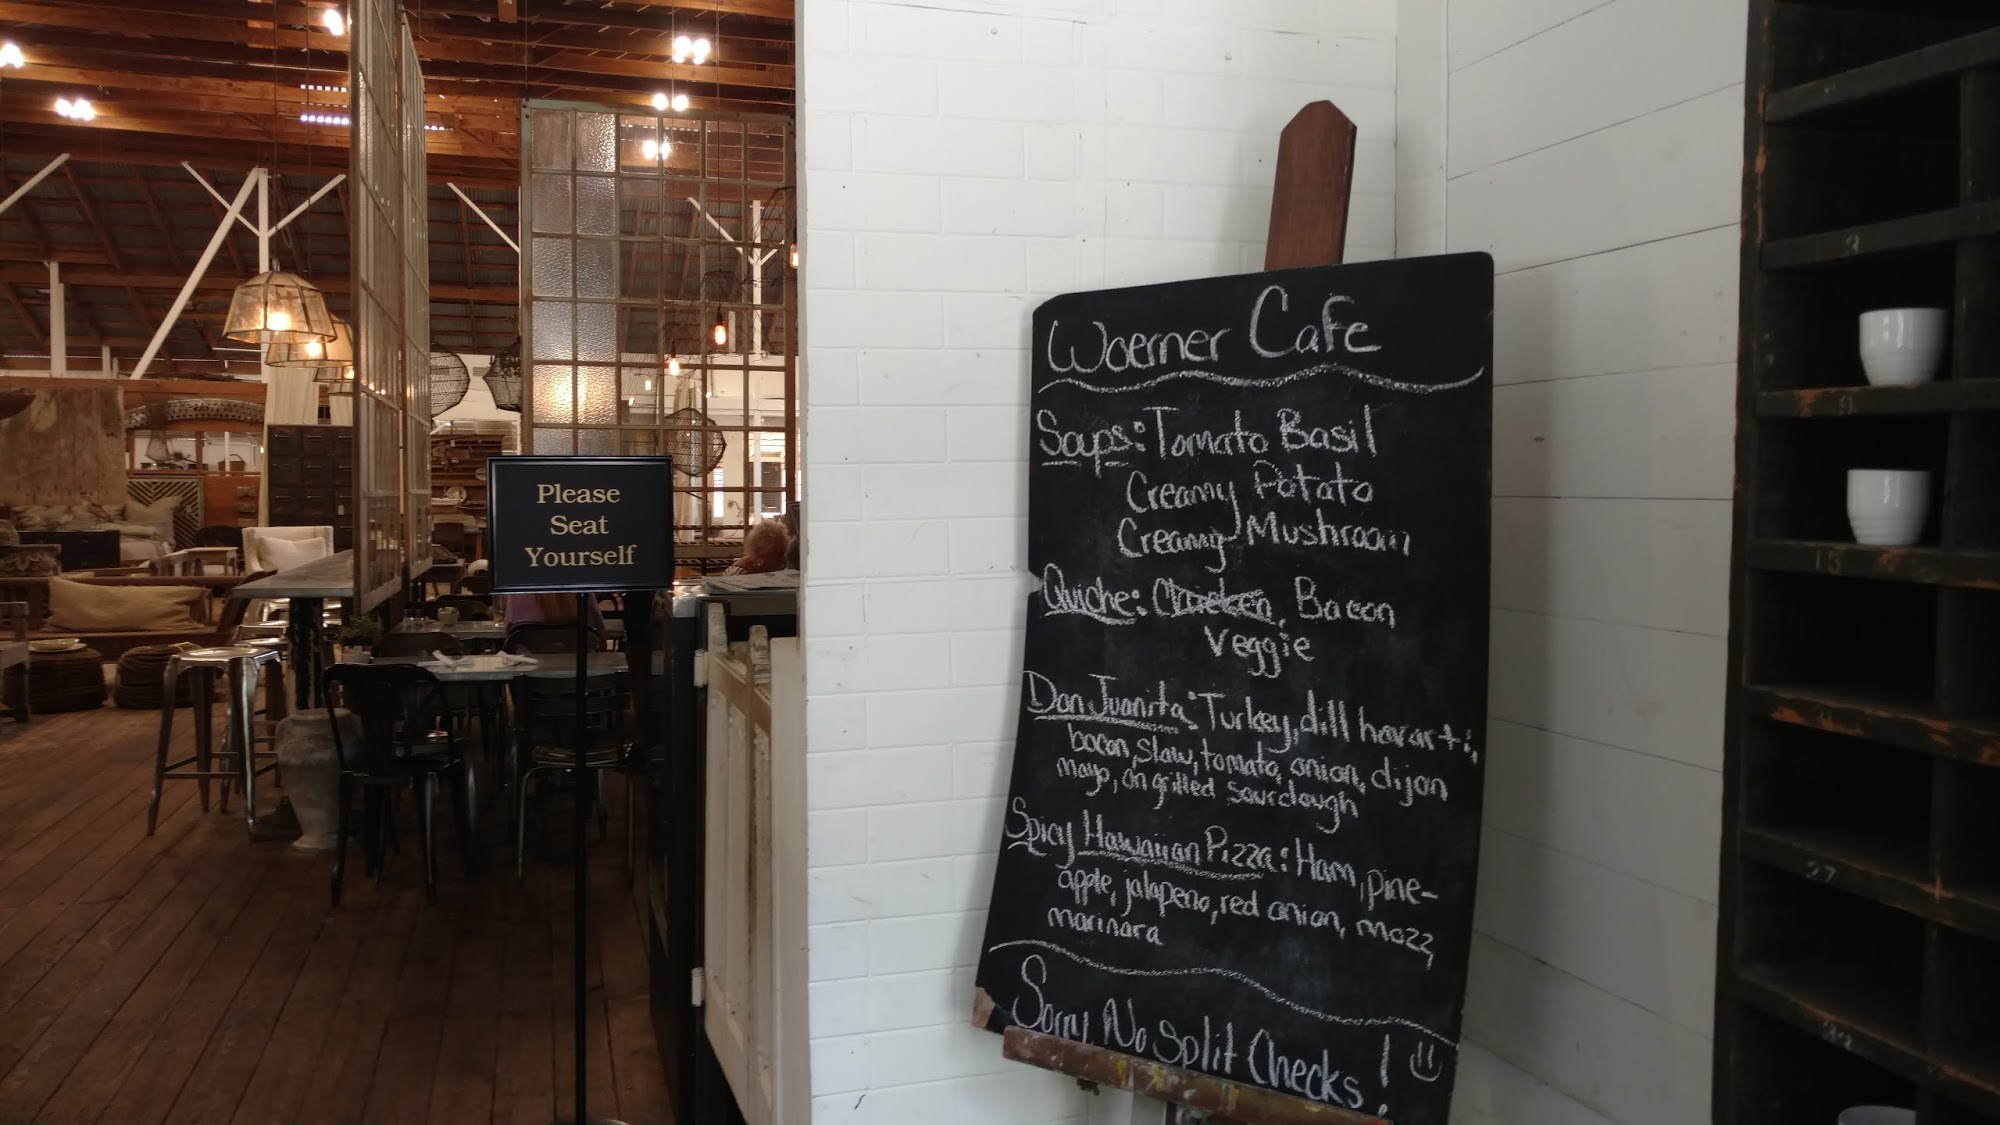 Please
Seat
Yourself
Woerner Cafe
Soups: Tomato Basil
Creamy Potato
Creamy Mushroom
Quiche: Chicken, Bacon
Veggie
Don Juanita: Turkey, dill havarti,
bacon, slaw, tomato, onion, dijon
mayo, on grilled sourdough
Spicy Hawaiian Pizza: Ham, pine-
apple, jalapeno, red onion, mozz,
marinara
Sorry, No Split Checks!
9
15
27